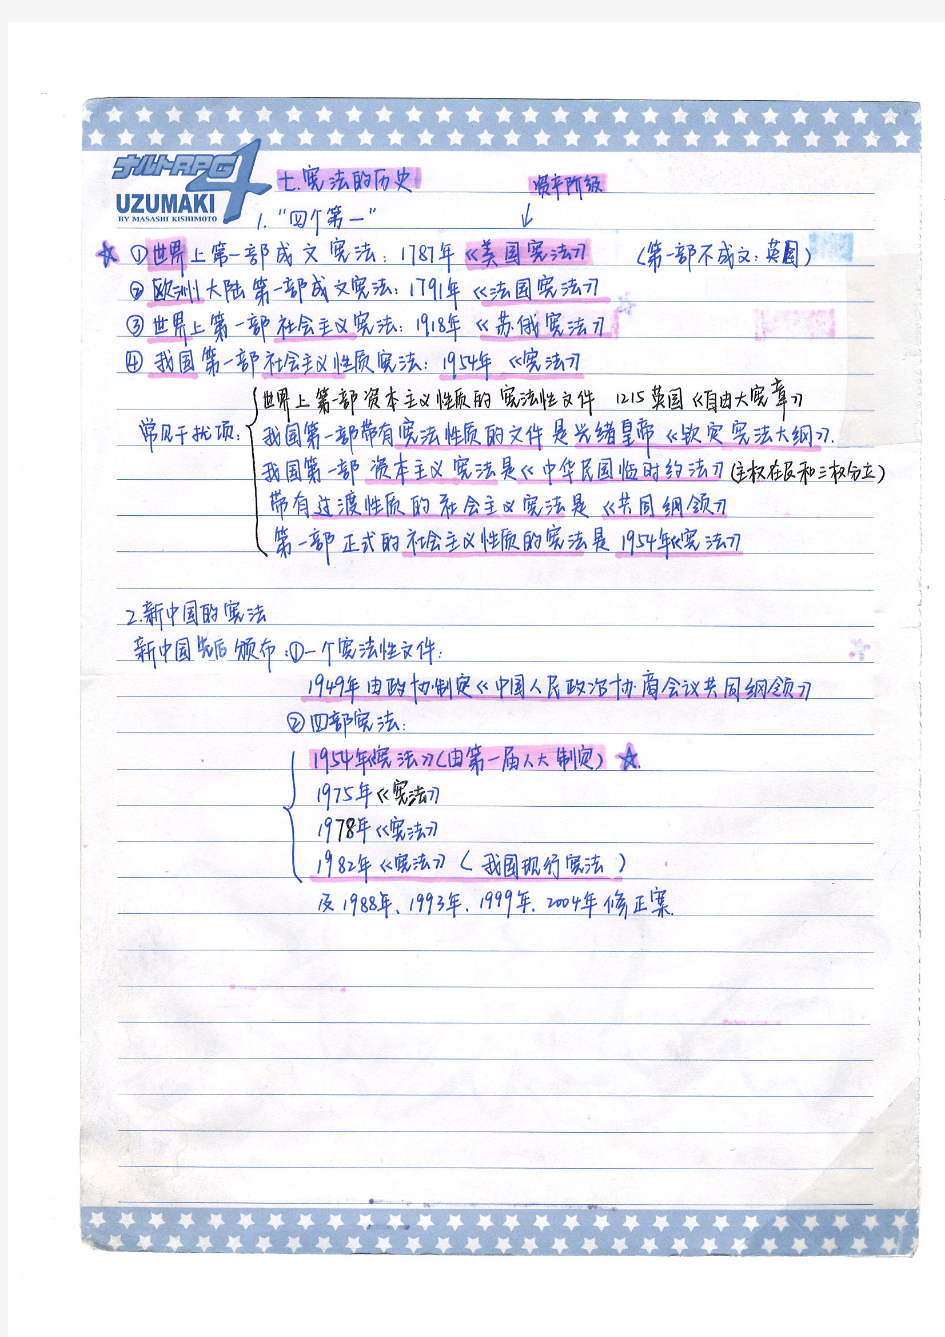 ナルトRPG4
UZUMAKI
BY MASASHI KISHIMOTO
七.宪法的历史
资产阶级
1."四个第一"
①世界上第一部成文宪法:1787年《美国宪法》 (第一部不成文:英国)
②欧洲大陆第一部成文宪法:1791年《法国宪法》
③世界上第一部社会主义宪法:1918年《苏俄宪法》
④我国第一部社会主义性质宪法:1954年《宪法》
常见干扰项:
世界上第一部资本主义性质的宪法性文件 1215英国《自由大宪章》
我国第一部带有宪法性质的文件是光绪皇帝《钦定宪法大纲》.
我国第一部资本主义宪法是《中华民国临时约法》(主权在民和三权分立)
带有过渡性质的社会主义宪法是《共同纲领》
第一部正式的社会主义性质的宪法是1954年《宪法》
2.新中国的宪法
新中国先后颁布:①一个宪法性文件:
1949年由政协制定《中国人民政治协商会议共同纲领》
②四部宪法:
1954年《宪法》(由第一届人大制定)
1975年《宪法》
1978年《宪法》
1982年《宪法》(我国现行宪法)
及1988年、1993年、1999年、2004年修正案.